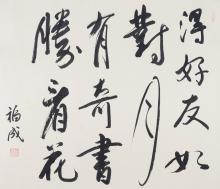 得好友如
對月
有奇書
勝看花
福成